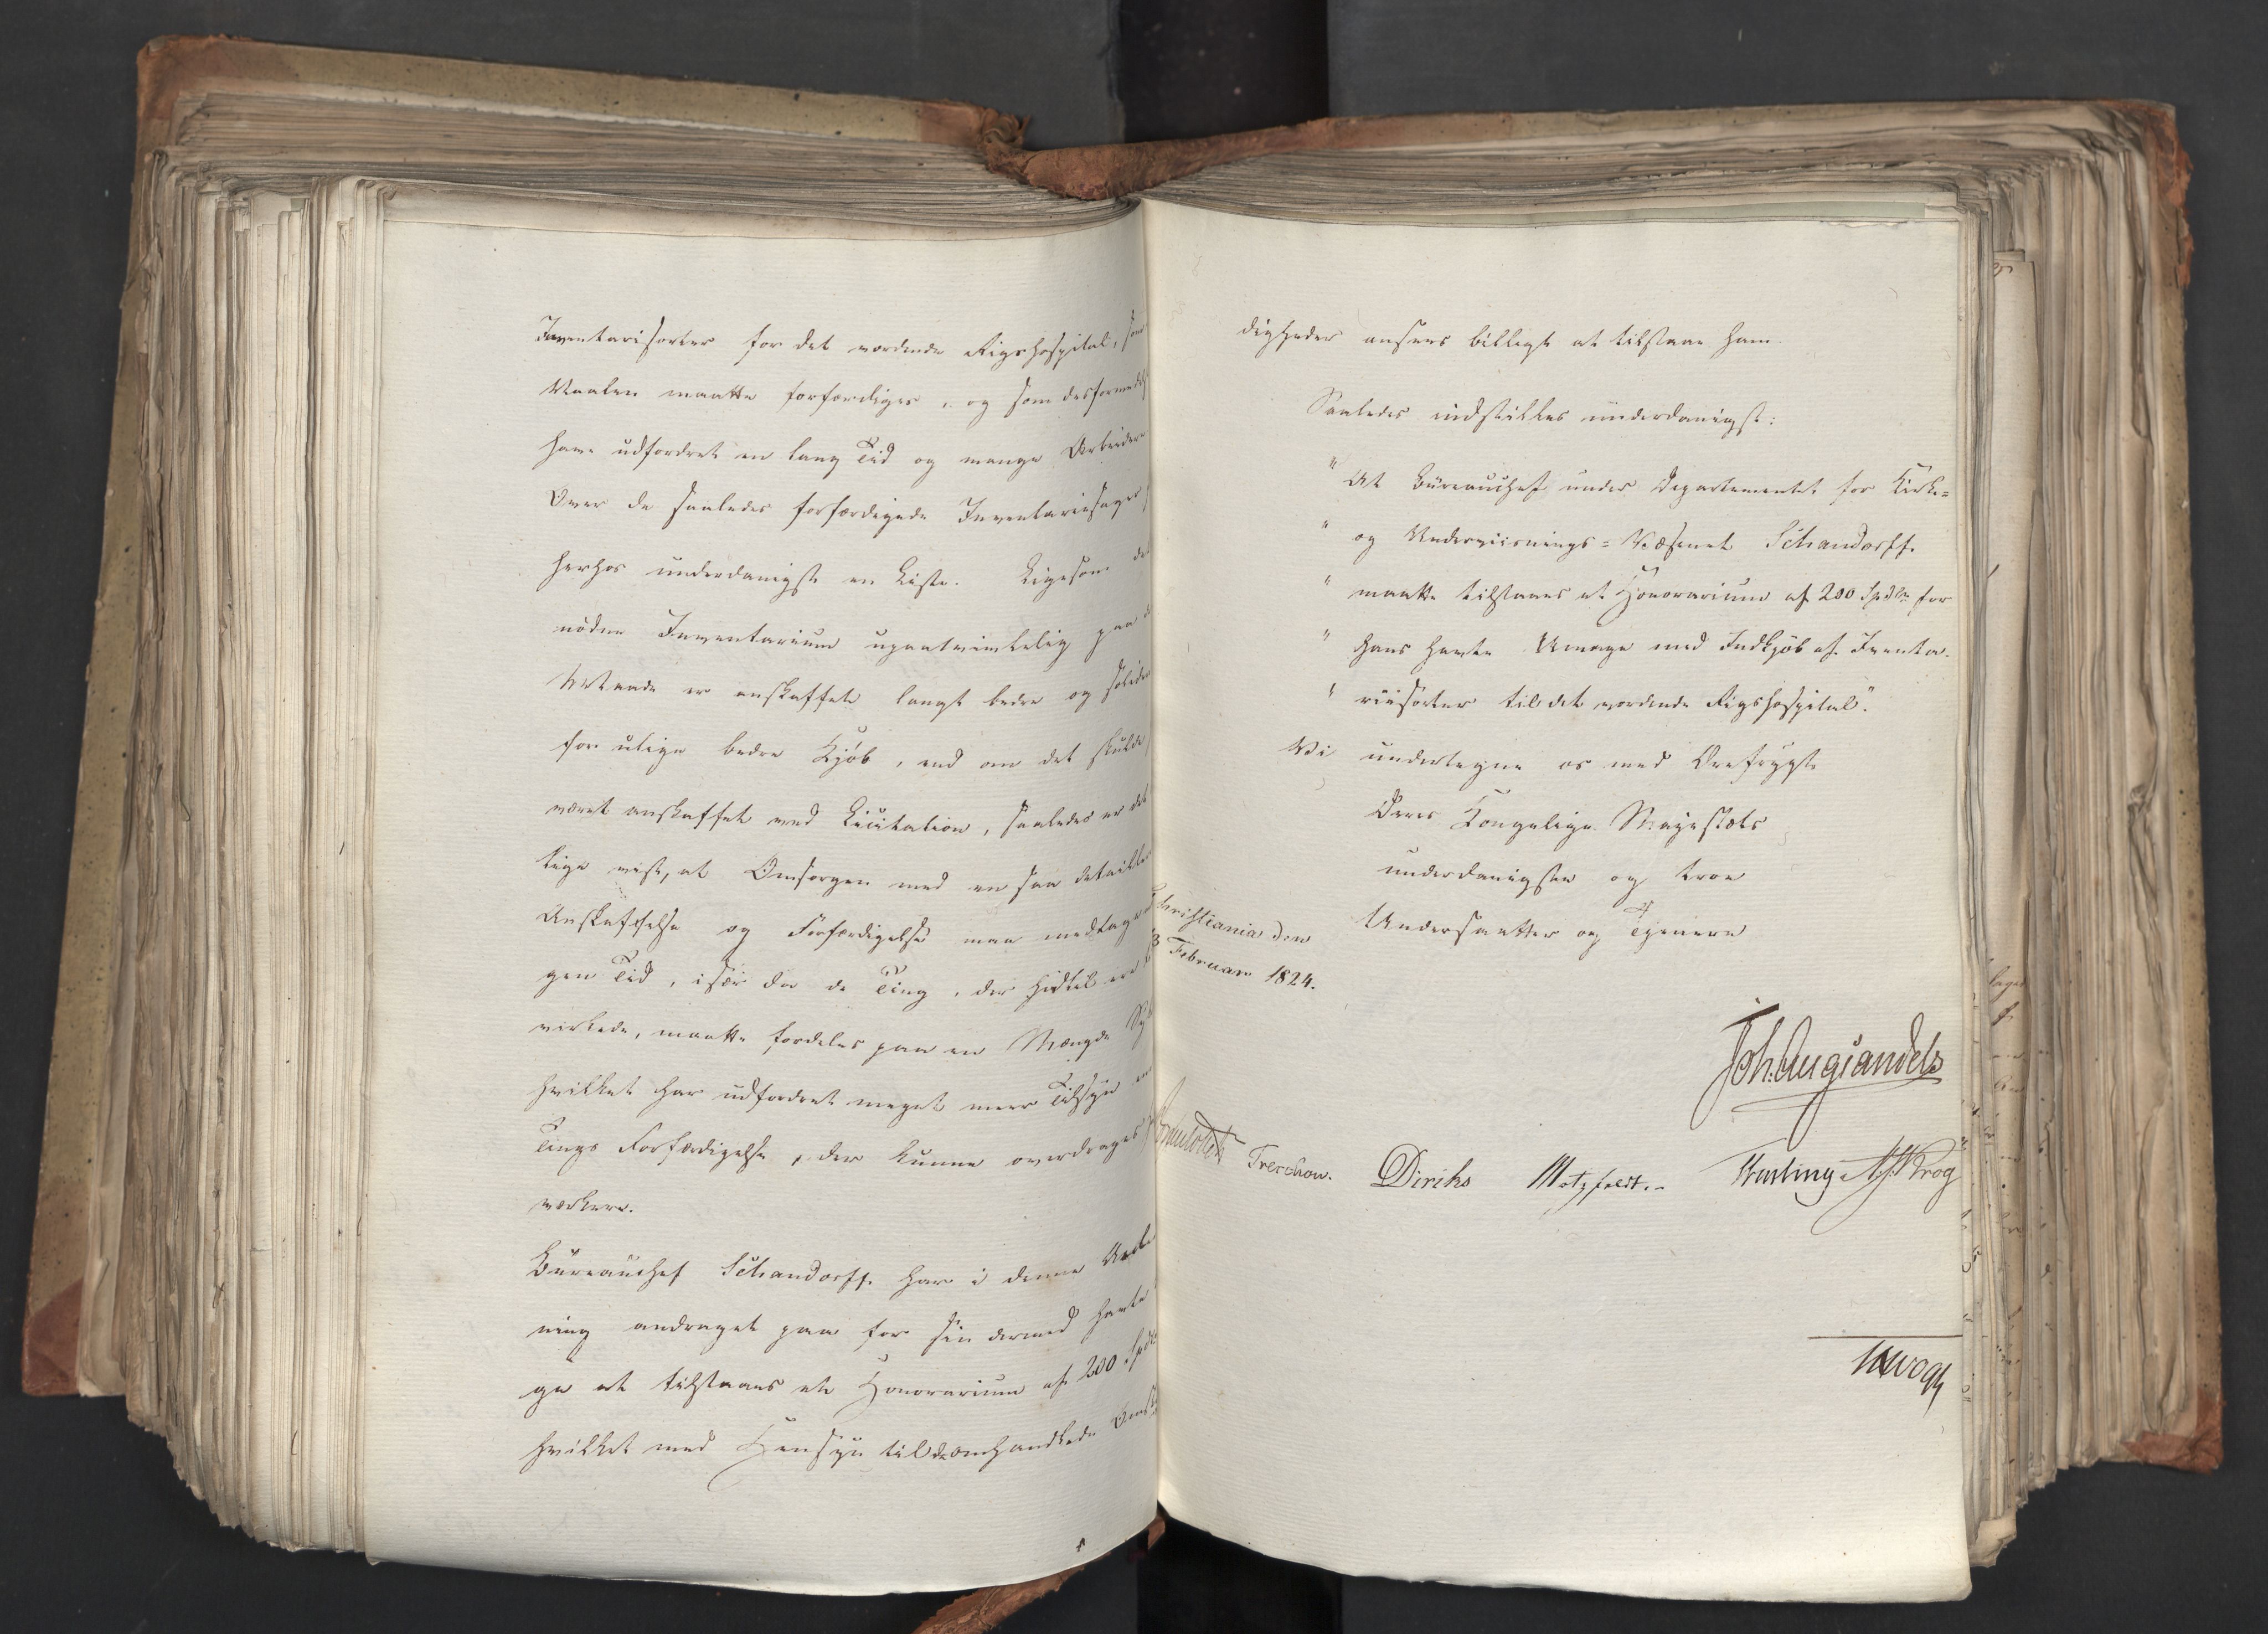 Inventarisorter for det vordende Rigshospital, som
maatte forfærdiges, og som desformedelst
have udfordret en lang Tid og mange Arbeidere
Over de saaledes forfærdigede Inventariesager
herhos underdanigst en Liste. Ligesom det
Inventarium upaatvivlelig paa
Maade er anskaffet langt bedre og solidere
for ulige bedre Kjøb, end om det skulde
været anskaffet ved Licitation, saaledes er det
lige vist, at Omsorgen med en saa detailleret
Anskaffelse og Forfærdigelse maa medtage
gen Tid, især da de Ting, der hidtil ere
virkede, maatte fordeles paa en Mængde
hvilket har udfordret meget meer Tilsyn end
Tings Forfærdigelse, der kunne overdrages
værkere.
Büreauchef Schandorff har i denne Anled
ning andraget paa for sin dermed havte
ge at tilstaaes et Honorarium af 200 Spd
hvilket med Hensyn til de omhandlede Omst
digheder ansees billigt at tilstaae ham.
Saaledes indstilles underdanigst:
" At Büreauchef under Departementet for Kirke=
" og Underviisnings=Væsenet Schandorff
" maatte tilstaaes et Honorarium af 200 Spdlr for
" hans havte Umage med Indkjøb af Inventa-
" riisorter til det vordende Rigshospital".
Vi undertegne os med Ærefrygt
Deres Kongelige Majestæts
underdanigste og troe
Undersaatter og Tjenere
Christiania den
Februar 1824.
Joh. Aug Sandels
Treschow. Diriks Motzfeldt. Krog